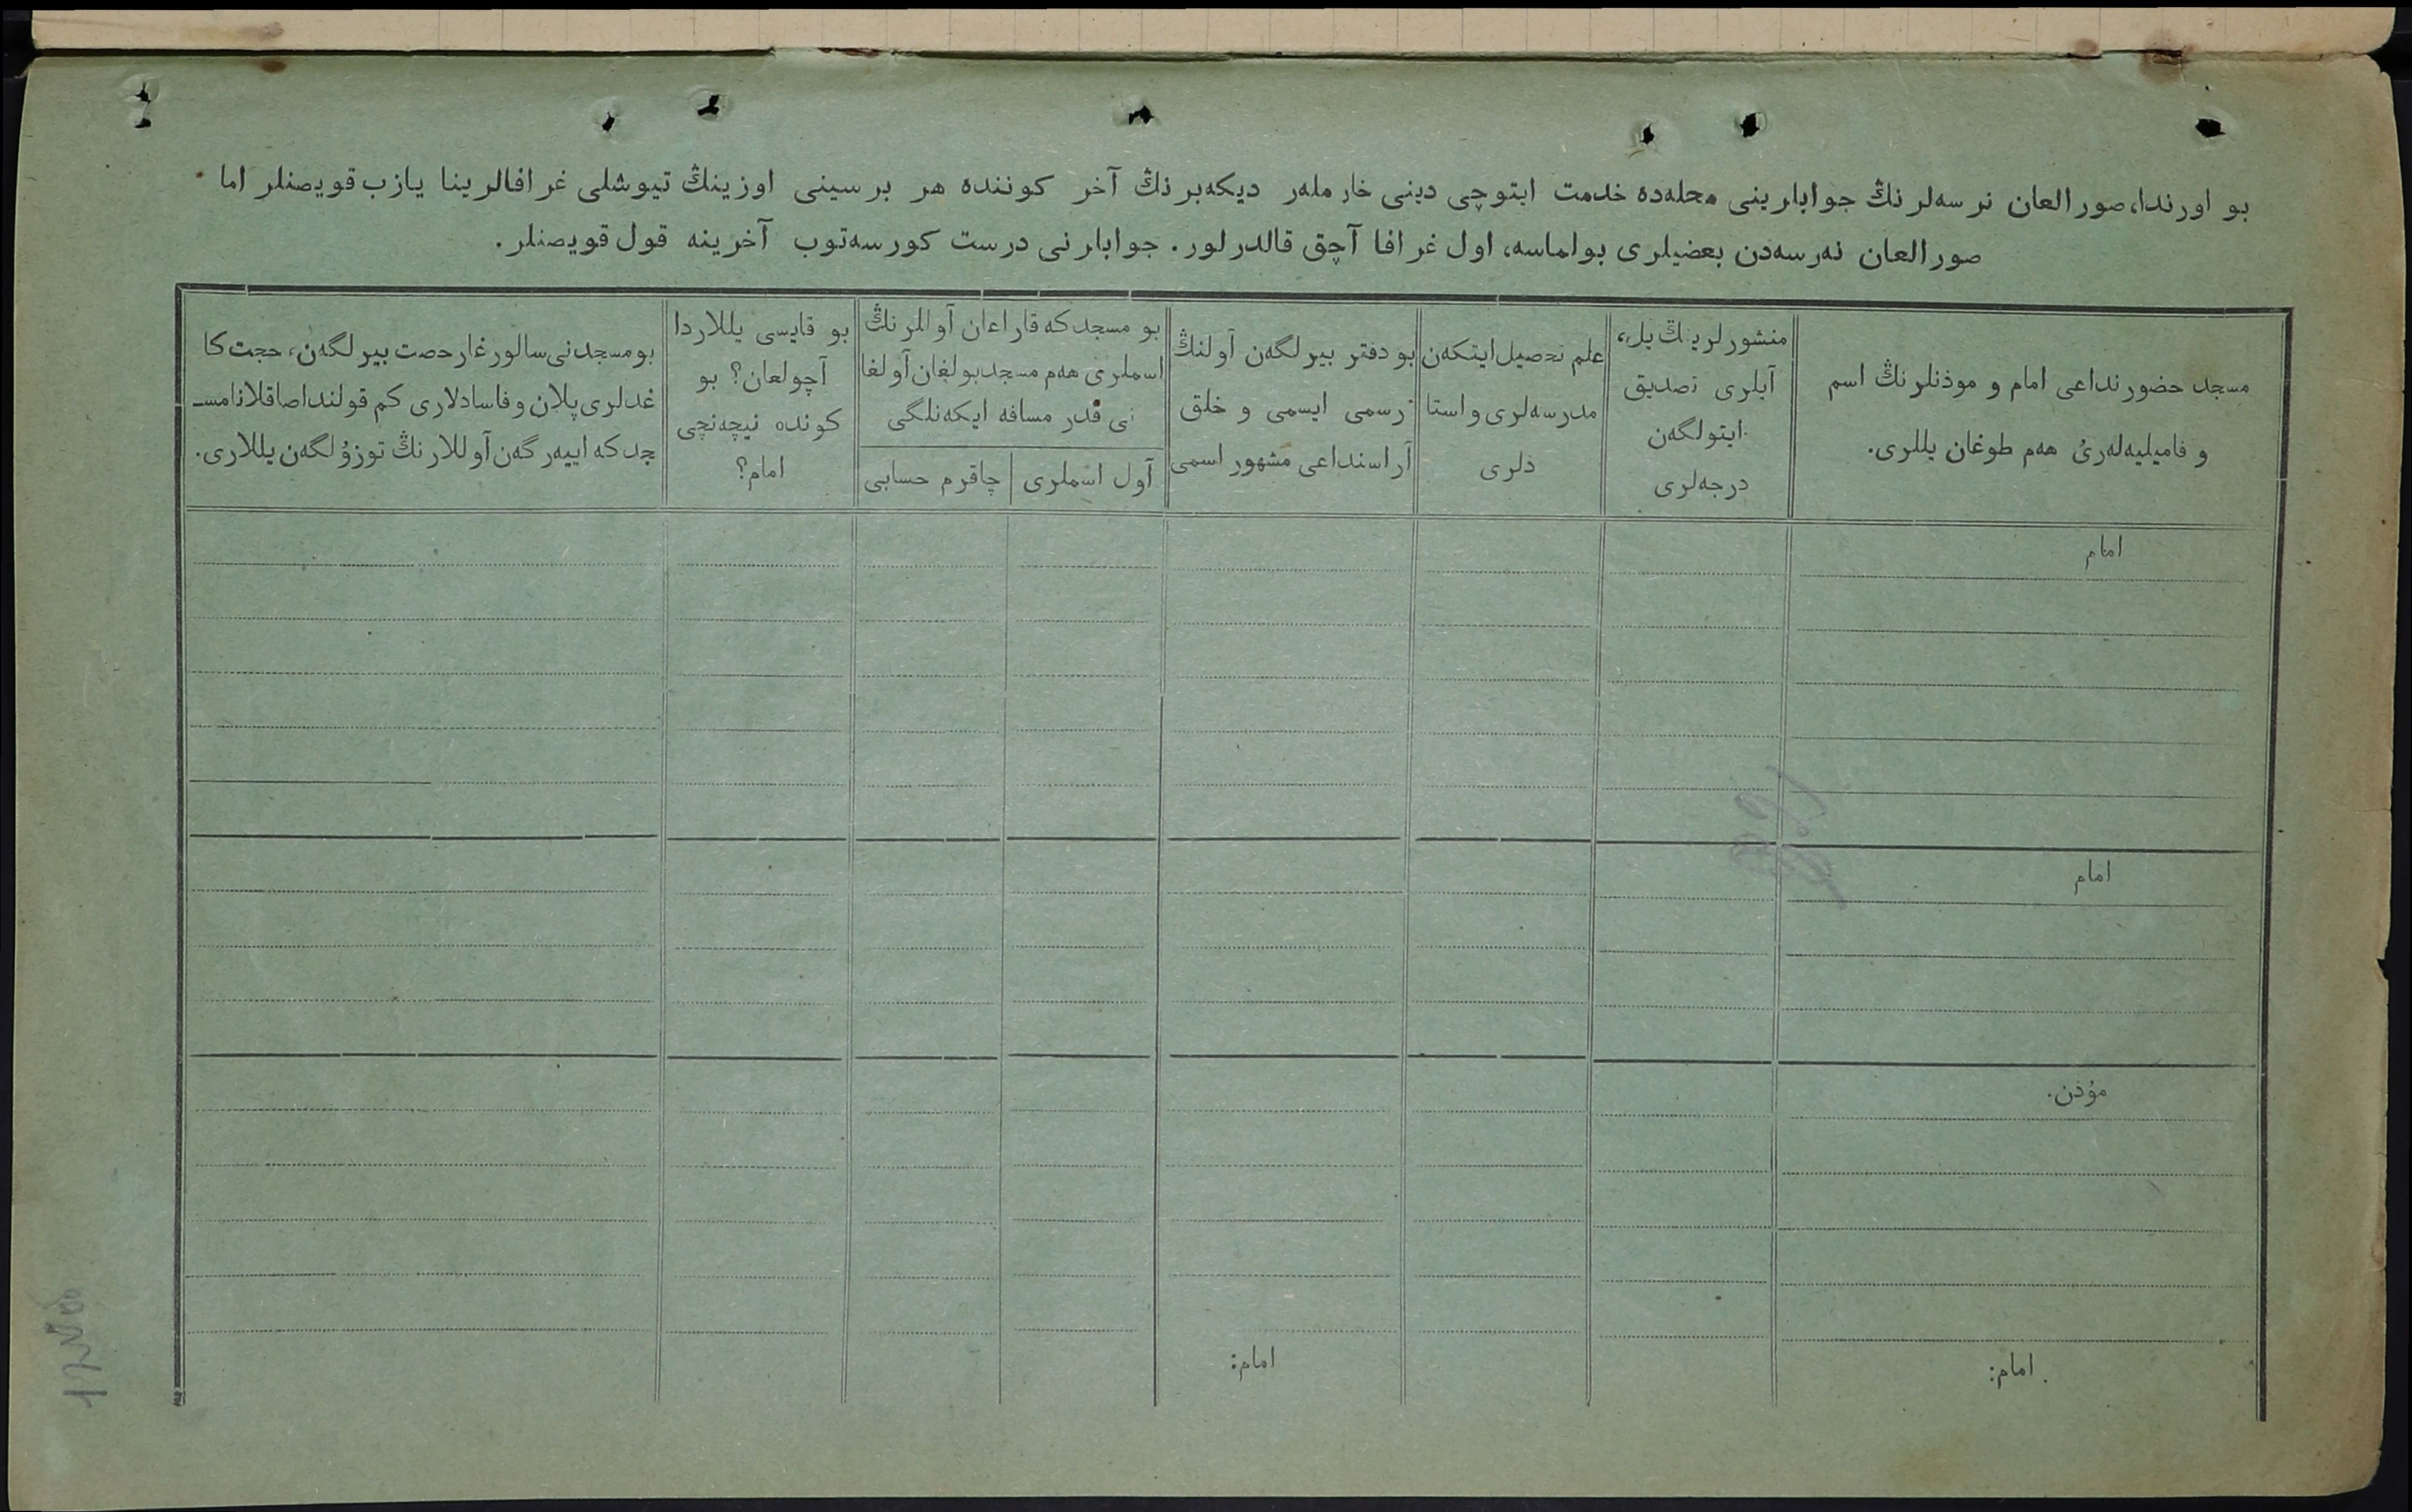 بو اورندا، صورالعان نرسه‌لرنڭ جوابلرینی محله‌ده خدمت ایتوچی دینی خادملەر دیکەبرنڭ آخر کوننده هر برسینی اوزینڭ تیوشلی غرافالرینا یازب قویصنلر اما
صورالعان نەرسەدن بعضیلری بولماسه، اول غرافا آچق قالدرلور. جوابلرنی درست کورسەتوب آخرینه قول قویصنلر.
مسجد حضورنداعی امام و موذنلرنڭ اسم
و فامیلیەلەرێ هەم طوغان یللری.
منشورلرینڭ یل،
آیلری تصدیق
ایتولگەن
درجەلری
علم تحصیل ایتکەن
مدرسه‌لری و استا
ذلری
بو دفتر بیرلگەن آولنڭ
رسمی ایسمی و خلق
آراسنداعی مشهور اسمی
بو مسجدکه قاراعان آوللرنڭ
اسملری هەم مسجد بولغان آولغا
نی قدر مسافه ایکەنلگی
آول اسملری
چاقرم حسابی
بو قایسی یللاردا
آچولعان؟ بو
کوندە نیچەنچی
امام؟
بو مسجدنی سالورغا رحصت بیرلگەن، حجت کا
غدلری پلان و فاسادلاری کم قولندا صاقلانا مسـ
چدکه اییەرگەن آوللارنڭ توزۇلگەن یللاری.
امام
امام
مؤذن.
امام:
امام: